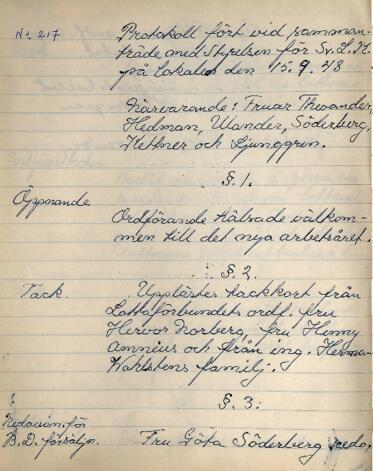 No 217
Protokoll fört vid samman-
träde med Styrelsen för Sv. L. K.
på lokalen den 15.9.48
Närvarande: Fruar Theander,
Hedman, Ulander, Söderberg,
Kettner och Ljunggren.
§.1.
Öppnande
Ordförande hälsade välkom-
men till det nya arbetsåret.
§.2.
Tack.
Upplästes tackkort från
Lottaförbundets ordf. fru
Hervor Norberg, fru Henny
Amneus och från ing. Herman
Wahlstens familj.
§.3:
Redovisn. för
B.D. försäljn.
Fru Göta Söderberg redo-